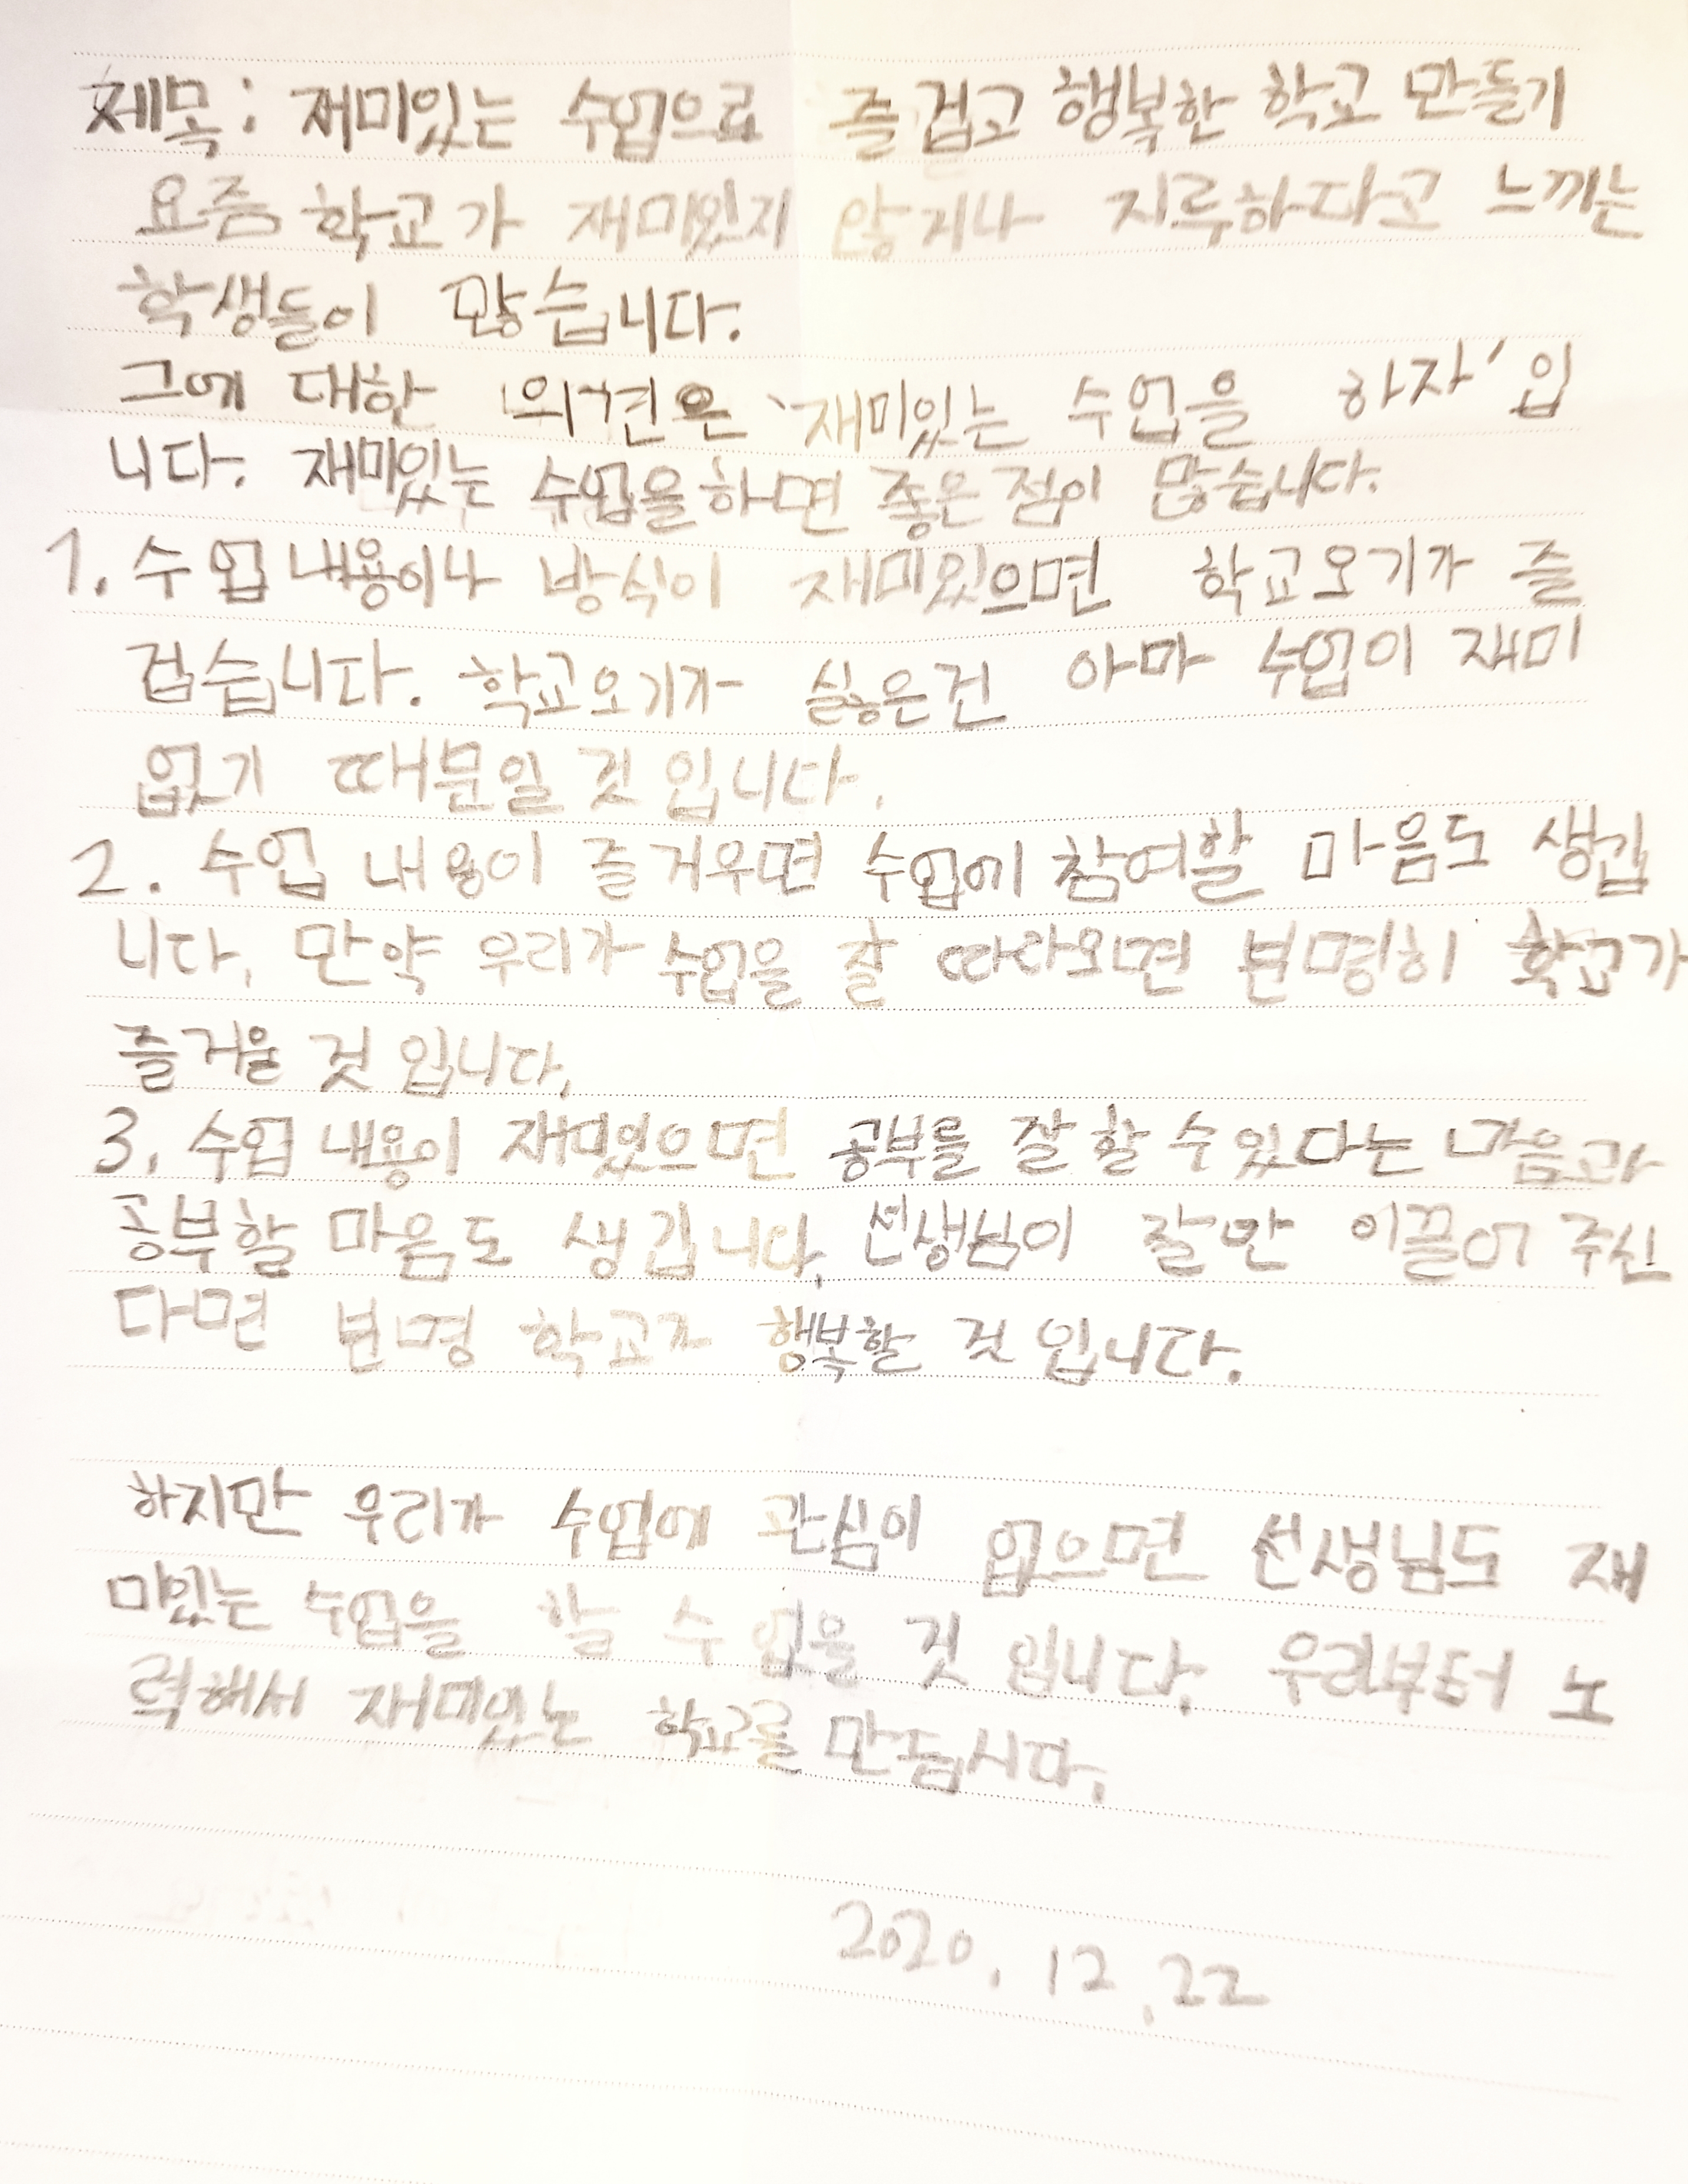 제목: 재미있는 수업으로 즐겁고 행복한 학교 만들기
요즘 학교가 재미있지 않거나 지루하다고 느끼는
학생들이 많습니다.
그에 대한 의견은 '재미있는 수업을 하자' 입
니다. 재미있는 수업을하면 좋은점이 많습니다.
1. 수업내용이나 방식이 재미있으면 학교오기가 즐
겁습니다. 학교오기가 싫은건 아마 수업이 재미
없기 때문일 것 입니다.
2. 수업 내용이 즐거우면 수업에 참여할 마음도 생깁
니다. 만약 우리가 수업을 잘 따라오면 분명히 학교가
즐거울 것 입니다.
3. 수업 내용이 재밌있으면 공부를 잘 할 수 있다는 마음과
공부할 마음도 생깁니다. 선생님이 잘만 이끌어 주신
다면 분명 학교가 행복할 것 입니다.
하지만 우리가 수업에 관심이 없으면 선생님도 재
미있는 수업을 할 수 없을 것 입니다. 우리부터 노
력해서 재미있는 학교를 만듭시다.
2020. 12. 22